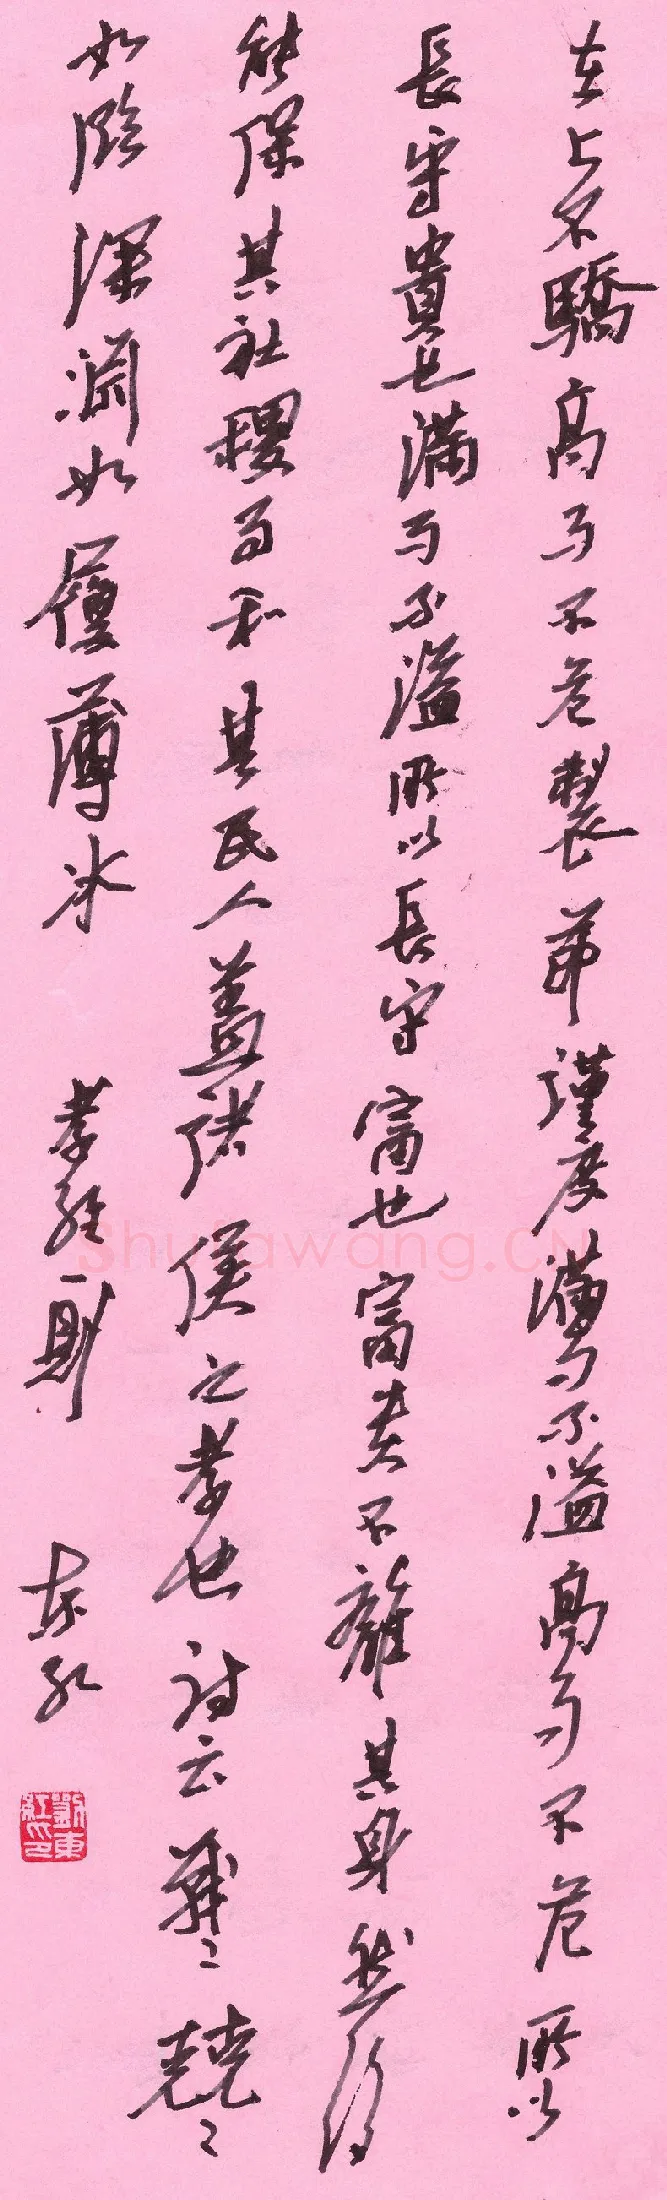 在上不驕高而不危製節謹度滿而不溢高而不危所以
長守貴也滿而不溢所以長守富也富貴不離其身然後
能保其社稷而和其民人蓋諸侯之孝也詩云戰〻兢〻
如臨深淵如履薄冰
孝經一則
东红
劉東紅印
Shufawang.CN